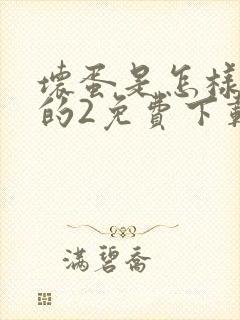 壞蛋是怎樣
的2免費下載
满碧喬